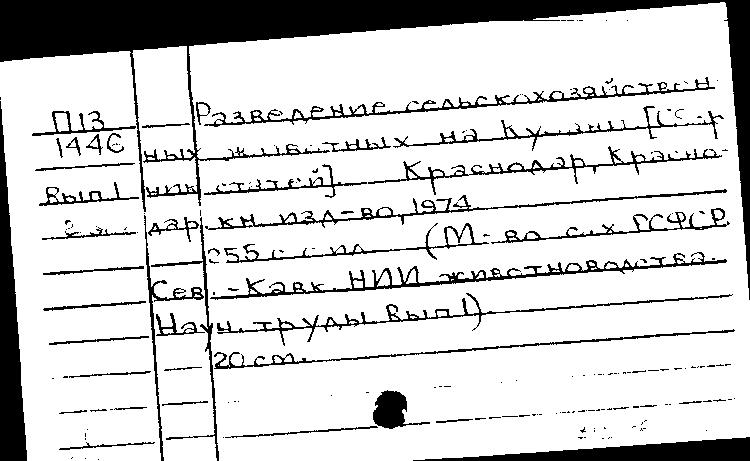 П13 Разведение сельскохозяйствен
1446 ных животных на Кубани [Сб-р
Вып.1 ник статей]. Краснодар, Красно-
2 дар. кн. изд-во, 1974
255 с. с ил. (М-во с.х РСФСР
Сев.-Кавк. НИИ животноводства.
Науч. труды Вып 1).
20 см.